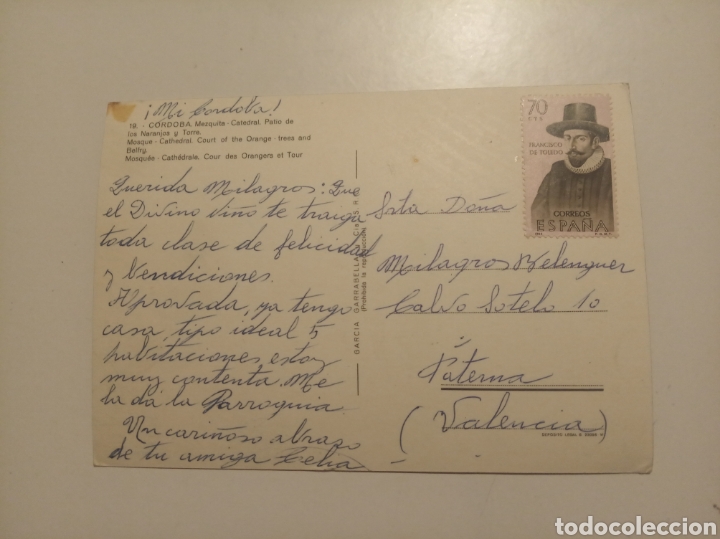 ¡Mi Cordoba!
19. - CORDOBA. Mezquita - Catedral. Patio de
los Naranjos y Torre.
Mosque - Cathedral. Court of the Orange - trees and
Belfry.
Mosquée - Cathédrale. Cour des Orangers et Tour
Querida Milagros: Que
el Divino niño te traiga
toda clase de felicidad
y Vendiciones.
Aprovada, ya tengo
casa, tipo ideal 5
habitaciones, estoy
muy contenta. Me
la da la Parroquia.
Un cariñoso abrazo
de tu amiga Celia
GARCIA GARRABELLA Y Cia
(Prohibida la reproducción)
70
PTS
FRANCISCO
DE TOLEDO
CORREOS
ESPAÑA
Srta Doña
Milagros Belenguer
Calvo Sotelo 10
Paterna
(Valencia)
todocoleccion